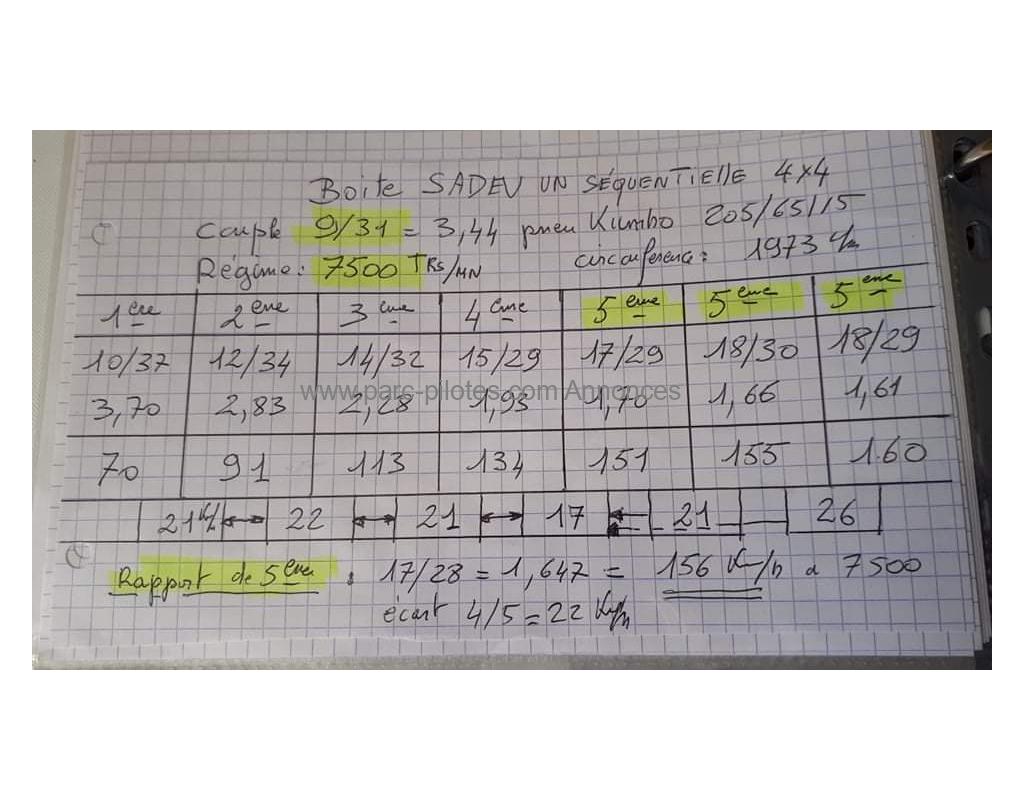 BOITE SADEV UN SÉQUENTIELLE 4x4
Couple 9/31 = 3,44 pneu Kumbo 205/65/15
Régime: 7500 TRS/MN circonférence: 1973
1ere 2eme 3eme 4eme 5eme 5eme 5eme
10/37 12/34 14/32 15/29 17/29 18/30 18/29
www.parc-pilotes.com Annonces
3,70 2,83 2,28 1,93 1,70 1,66 1,61
70 91 113 134 151 155 160
21 22 21 17 21 26
Rapport de 5eme : 17/28 = 1,647 = 156 Km/h a 7500
écart 4/5 = 22 Km/h